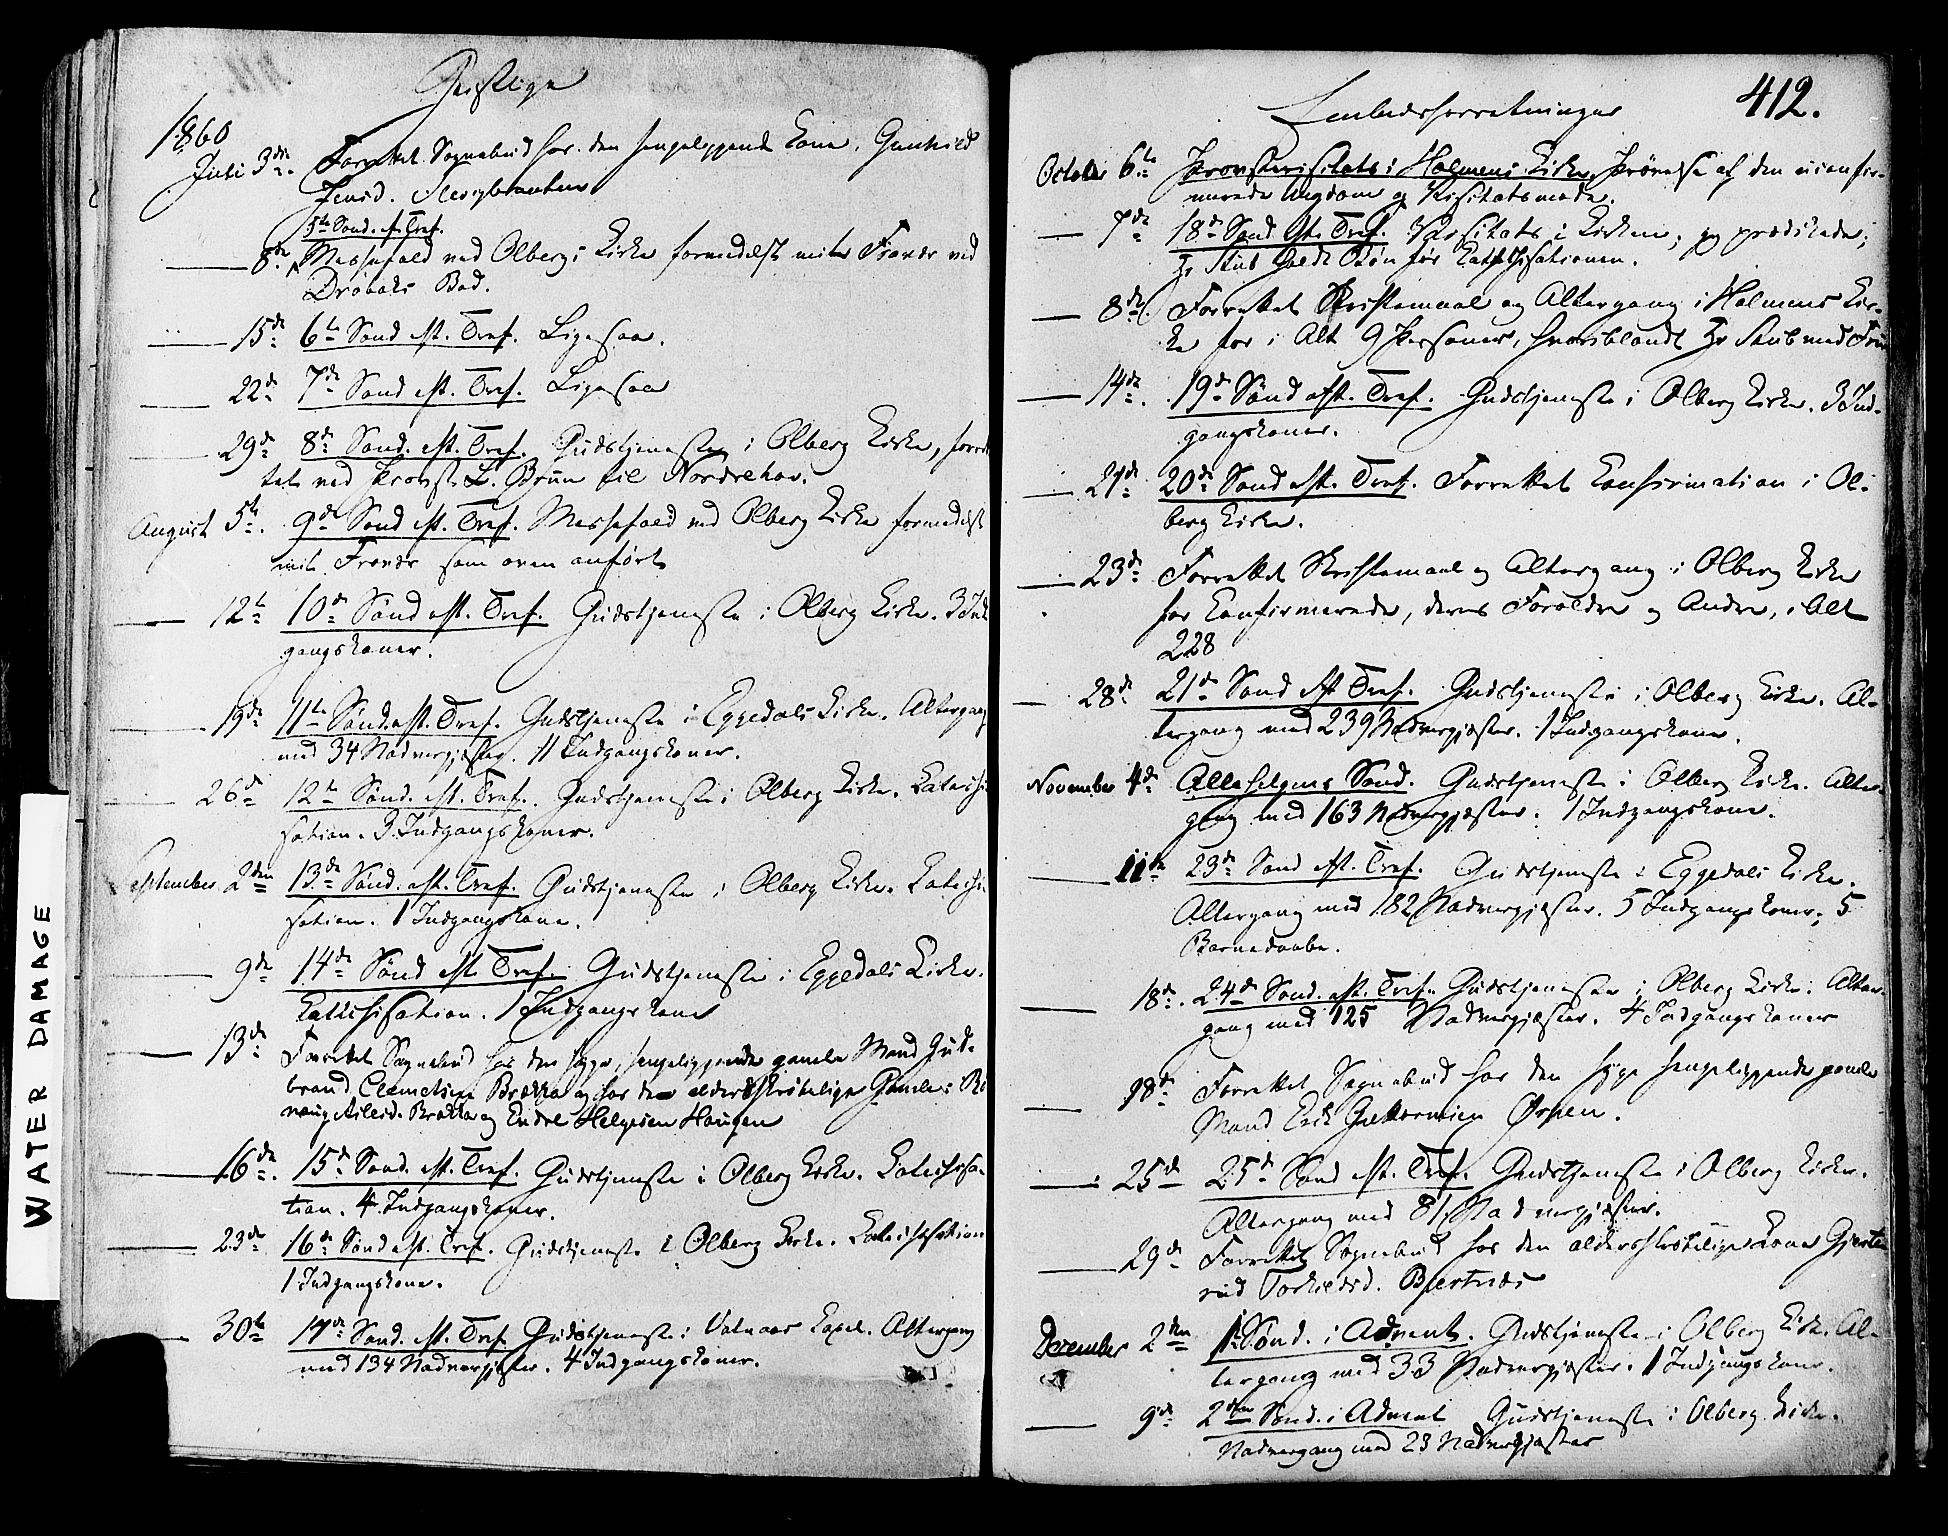 Geistlige
1860
Juli 3die. Forrettet Sognebud hos den sengeliggende Kone, Gunhild
Jensd.
5te Sønd. e. Tref.
8de Messefald ved Olbergs Kirke formedelst mit Fravær ved
Drøbaks Bad.
15de 6te Sønd. eft. Tref. Ligesaa.
22de 7de Sønd. eft. Tref. Ligesaa
29de 8de Sønd. eft. Tref. Gudstjeneste i Olberg Kirke, forret-
tet ved Provst Bruun til Norderhov.
August 5te. 9de Sønd. eft. Tref. Messefald ved Olberg Kirke formedelst
mit Fravær som oven anført
12te 10de Sønd. eft. Tref. Gudstjeneste i Olberg Kirke. 3 Ind-
gangskoner.
19de 11te Sønd. eft. Tref. Gudstjeneste i Eggedals Kirke. Altergang
med 34 Nadvergjester. 11 Indgangskoner.
26de 12te Sønd. eft. Tref. Gudstjeneste i Olberg Kirke. Katechi-
sation. 3 Indgangskoner.
September 2den 13de Sønd. eft. Tref. Gudstjeneste i Olberg Kirke. Katechi-
sation. 1 Indgangskone.
9de 14de Sønd eft. Tref. Gudstjeneste i Eggedals Kirke.
Katechisation. 1 Indgangskone
13de Forrettet Sognebud hos den syge, sengeliggende gamle Mand Gud-
brand Clemetsen Brækka og hos de alderdskrøbelige Gamle:
Brækka og Endre Helgesen Haugen
16de. 15de Sønd. eft. Tref. Gudstjeneste i Olberg Kirke. Katechisa-
tion. 4 Indgangskoner.
23de 16de Sønd eft. Tref. Gudstjeneste i Olberg Kirke. Katechisation
1 Indgangskone.
30te 17de Sønd. eft. Tref. Gudstjeneste i Vatnaas Kapel. Altergang
med 134 Nadvergjester. 4 Indgangskoner.
WATER DAMAGE
Embedsforretninger
412.
October 6te Provstevisitats i Holmens Kirke, Prøvelse af den uconfir-
merede Ungdom og Visitatsmøde.
7de 18de Sønd. eft. Tref. Visitats i Kirken; jeg prædikede;
Hr Stub holdt Bøn før Katechisationen.
8de Forrettet Skriftemaal og Altergang i Holmens Kir-
ke for i Alt 9 Personer, hvoriblandt Hr Stub med Frue
14de. 19de Sønd eft. Tref. Gudstjeneste i Olberg Kirke. 3 Ind-
gangskoner.
21de 20de Sønd eft. Tref. Forrettet Confirmation i Ol-
berg Kirke.
23de Forrettet Skriftemaal og Altergang i Olberg Kirke
for Confirmerede, deres Forældre og Andre, i Alt
228
28de 21de Sønd eft Tref. Gudstjeneste i Olberg Kirke. Al-
tergang med 239 Nadvergjester. 1 Indgangskone.
November 4de Allehelgens Sønd. Gudstjeneste i Olberg Kirke. Alter-
gang med 163 Nadvergjester. 1 Indgangskone.
11te 23de Sønd eft. Tref. Gudstjeneste i Eggedals Kirke.
Altergang med 182 Nadvergjester. 5 Indgangskoner; 5
Barnedaabe.
18de. 24de Sønd. eft. Tref. Gudstjeneste i Olberg Kirke. Alter-
gang med 125 Nadvergjester. 4 Indgangskoner
18de Forrettet Sognebud hos den syge sengeliggende gamle
Mand Erik Guttormsen Ørpen.
25de 25de Sønd eft. Tref. Gudstjeneste i Olberg Kirke.
Altergang med 81 Nadvergjester.
29de Forrettet Sognebud hos den aldersskrøbelige Kone Gjert-
rud Torkildsd. Bjertnæs
December 2den 1. Sønd. i Advent. Gudstjeneste i Olberg Kirke. Al-
tergang med 33 Nadvergjester. 1 Indgangskone.
9de 2den Sønd. i Advent Gudstjeneste i Olberg Kirke.
Nadvergang med 23 Nadvergjester